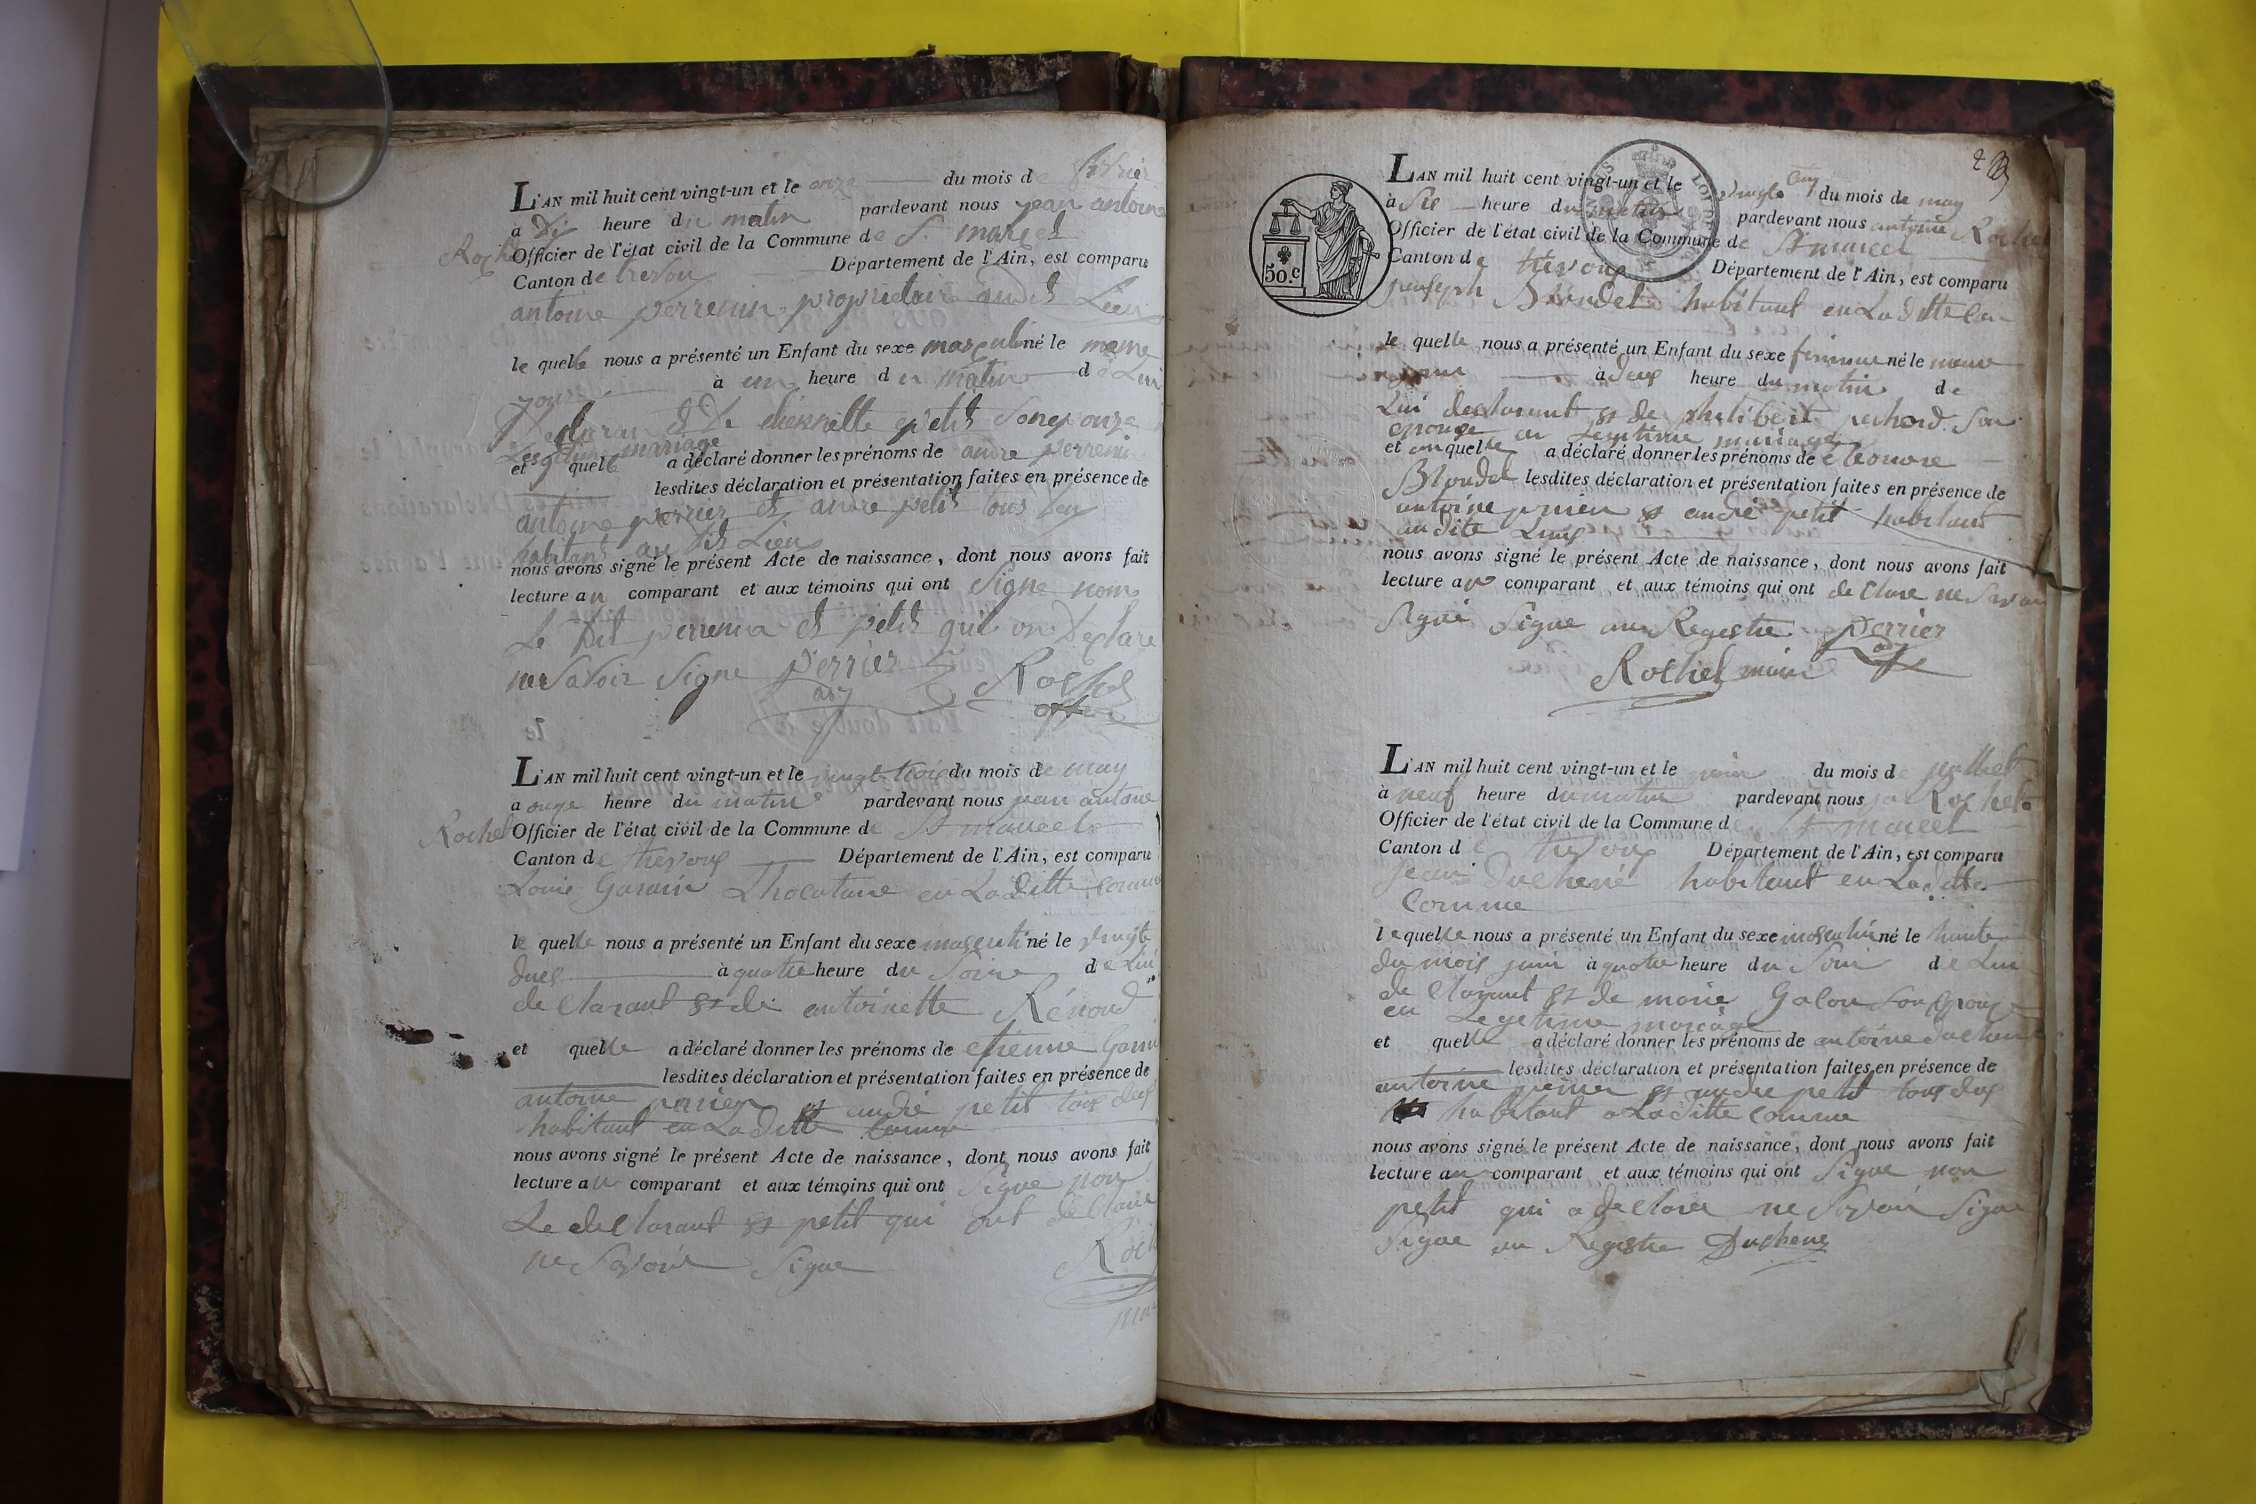 L'AN mil huit cent vingt-un et le onze du mois de février
à dix heure du matin pardevant nous jean antoine
Rochel Officier de l'état civil de la Commune de St marcel
Canton de trevoux Département de l'Ain, est comparu
antoine perrenin proprietaire audit Lieu
le quelle nous a présenté un Enfant du sexe masculin né le meme
jour à un heure du matin de Lui
et De etiennette petit
mariage
et quelle a déclaré donner les prénoms de andre perrenin
lesdites déclaration et présentation faites en présence de
antoine perrier et andre petit tous deux
habitant au dit Lieu
nous avons signé le présent Acte de naissance, dont nous avons fait
lecture au comparant et aux témoins qui ont Signe non
Le dit perrenin et petit qui on Déclare
ne Savoir Signe Perrier Rochel
adj
L'AN mil huit cent vingt-un et le vingt trois du mois de may
a onze heure du matin pardevant nous jean antoine
Rochel Officier de l'état civil de la Commune de St marcel
Canton de trevoux Département de l'Ain, est comparu
Louis en Laditte Comune
le quelle nous a présenté un Enfant du sexe masculin né le vingte
deux à quatre heure du Soire de Lui
declarant et de antoinette Rénoud
et quelle a déclaré donner les prénoms de etienne
lesdites déclaration et présentation faites en présence de
antoine perrier et andré petit tous deux
habitant en Laditte Comune
nous avons signé le présent Acte de naissance, dont nous avons fait
lecture au comparant et aux témoins qui ont Signe non
Le declarant et petit qui ont declaire
ne Savoir Signe Roch
50.c
L'AN mil huit cent vingt-un et le vingt cinq du mois de may
à Six heure du matin pardevant nous antoine Rochel
Officier de l'état civil de la Commune de St marcel
Canton de trevoux Département de l'Ain, est comparu
joseph Blondel habitant en La ditte Com
le quelle nous a présenté un Enfant du sexe feminin né le meme
jour à deux heure du matin de
Lui declarant et de philiberte Son
epouse en Legitime mariage
et quelle a déclaré donner les prénoms de eleonore
Blondel lesdites déclaration et présentation faites en présence de
antoine perrier et andré petit habitant
audite Lieux
nous avons signé le présent Acte de naissance, dont nous avons fait
lecture au comparant et aux témoins qui ont declare ne Savoir
Signé Signe au Registre perrier
adj
Rochel maire
L'AN mil huit cent vingt-un et le du mois de juillet
à neuf heure du matin pardevant nous Rochel
Officier de l'état civil de la Commune de St marcel
Canton de trevoux Département de l'Ain, est comparu
Jean Duchene habitant en Laditte
Comune
le quelle nous a présenté un Enfant du sexe masculin né le trente
du mois juin à quatre heure du Soir de Lui
declarant et de marie Galon Son Epouse
en Legetime mariage
et quelle a déclaré donner les prénoms de antoine duchene
lesdites déclaration et présentation faites en présence de
antoine perrier et andre petit tous deux
habitant a Laditte comune
nous avons signé le présent Acte de naissance, dont nous avons fait
lecture au comparant et aux témoins qui ont Signe non
petit qui a declarer ne Savoir Signe
Signe au Registre Duchene